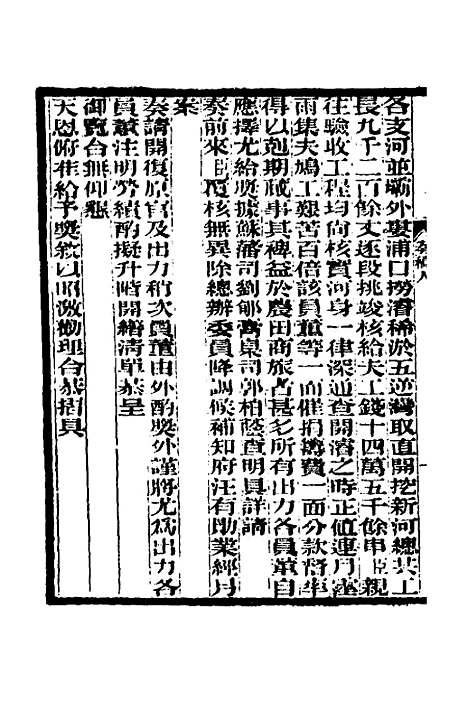 各支河並壩外婁浦口撈濬稀於五逆灣取直開挖新河總共工
長九千二百餘丈逐段挑竣核給夫工錢十四萬五千餘串臣親
往驗收工程均尚核實河身一律深通查開濬之時正値連月
雨集夫鳩工艱苦百倍該員董等一面催捐攤費一面分款督率
得以剋期蕆事其裨益於農田商旅者甚多所有出力各員董自
應擇尤給奬據蘇藩司劉郇膏臬司郭柏蔭查明具詳請
奏前來臣覆核無異除總辦委員降調候補知府汪有勛業經另
案
奏請開復原官及出力稍次員董由外酌奬外謹將尤爲出力各
員董注明勞績酌擬升階開繕淸單恭呈
御覽合無仰懇
天恩府准給予奬敘以昭激勸理合恭摺具